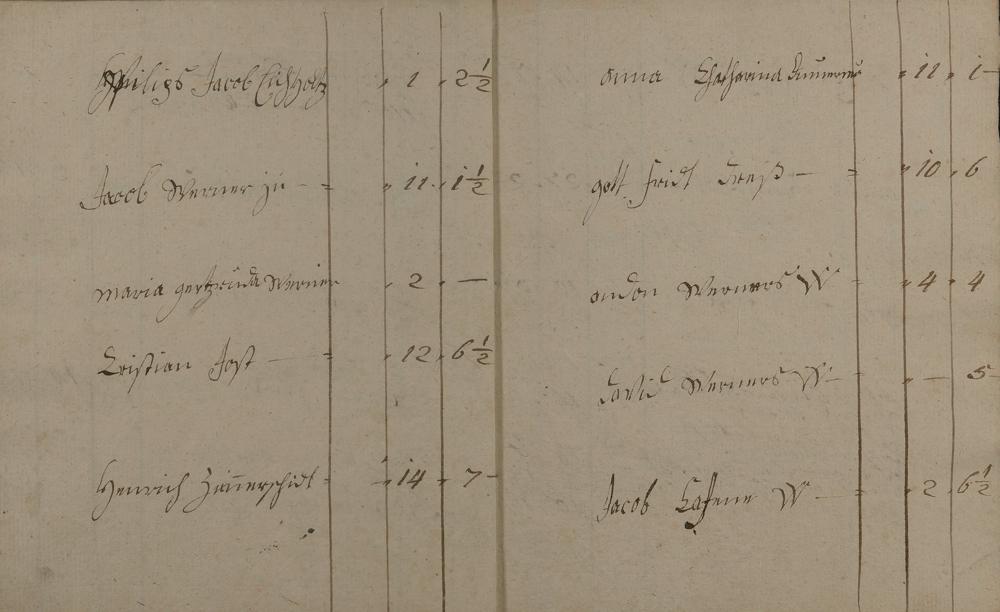 Philips Jacob Eichholtz 1 2½
Jacob Werner 11 1½
maria gertruda Werner 2 —
Cristian Jost — 12 6½
Henrich Zimerschidt 14 7
anna Chatharina 11 1
gott fridt — 10 6
anton Werners W 4 4
david Werners W — — 5
Jacob W — 2 6½